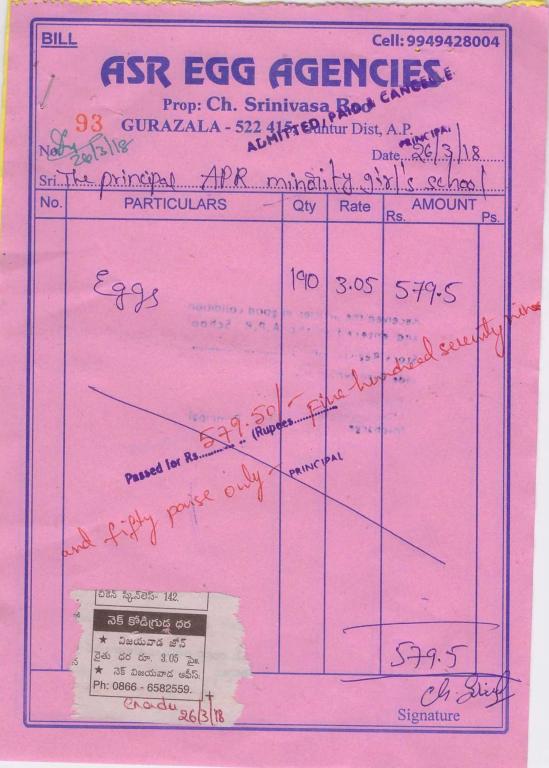 BILL
Cell: 9949428004
ASR EGG AGENCIES
Prop: Ch. Srinivasa Rao
GURAZALA - 522 415. Guntur Dist, A.P.
ADMITTED, PAID & CANCELLE
PRINCIPAL
No. 93
26/3/18
Date 26/3/18
Sri The principal APR minority girl's school
No. PARTICULARS Qty Rate AMOUNT
Rs. Ps.
Eggs 190 3.05 579.5
Passed for Rs. 579.50/- (Rupees Five hundred seventy nine
and fifty paise only -
PRINCIPAL
చికెన్ స్కిన్‌లెస్- 142.
నెక్ కోడిగ్రుడ్ల ధర
★ విజయవాడ జోన్
రైతు ధర రూ. 3.05 పై.
★ నెక్ విజయవాడ ఆఫీస్:
Ph: 0866 - 6582559.
Enadu
26/3/18
579.5
Signature